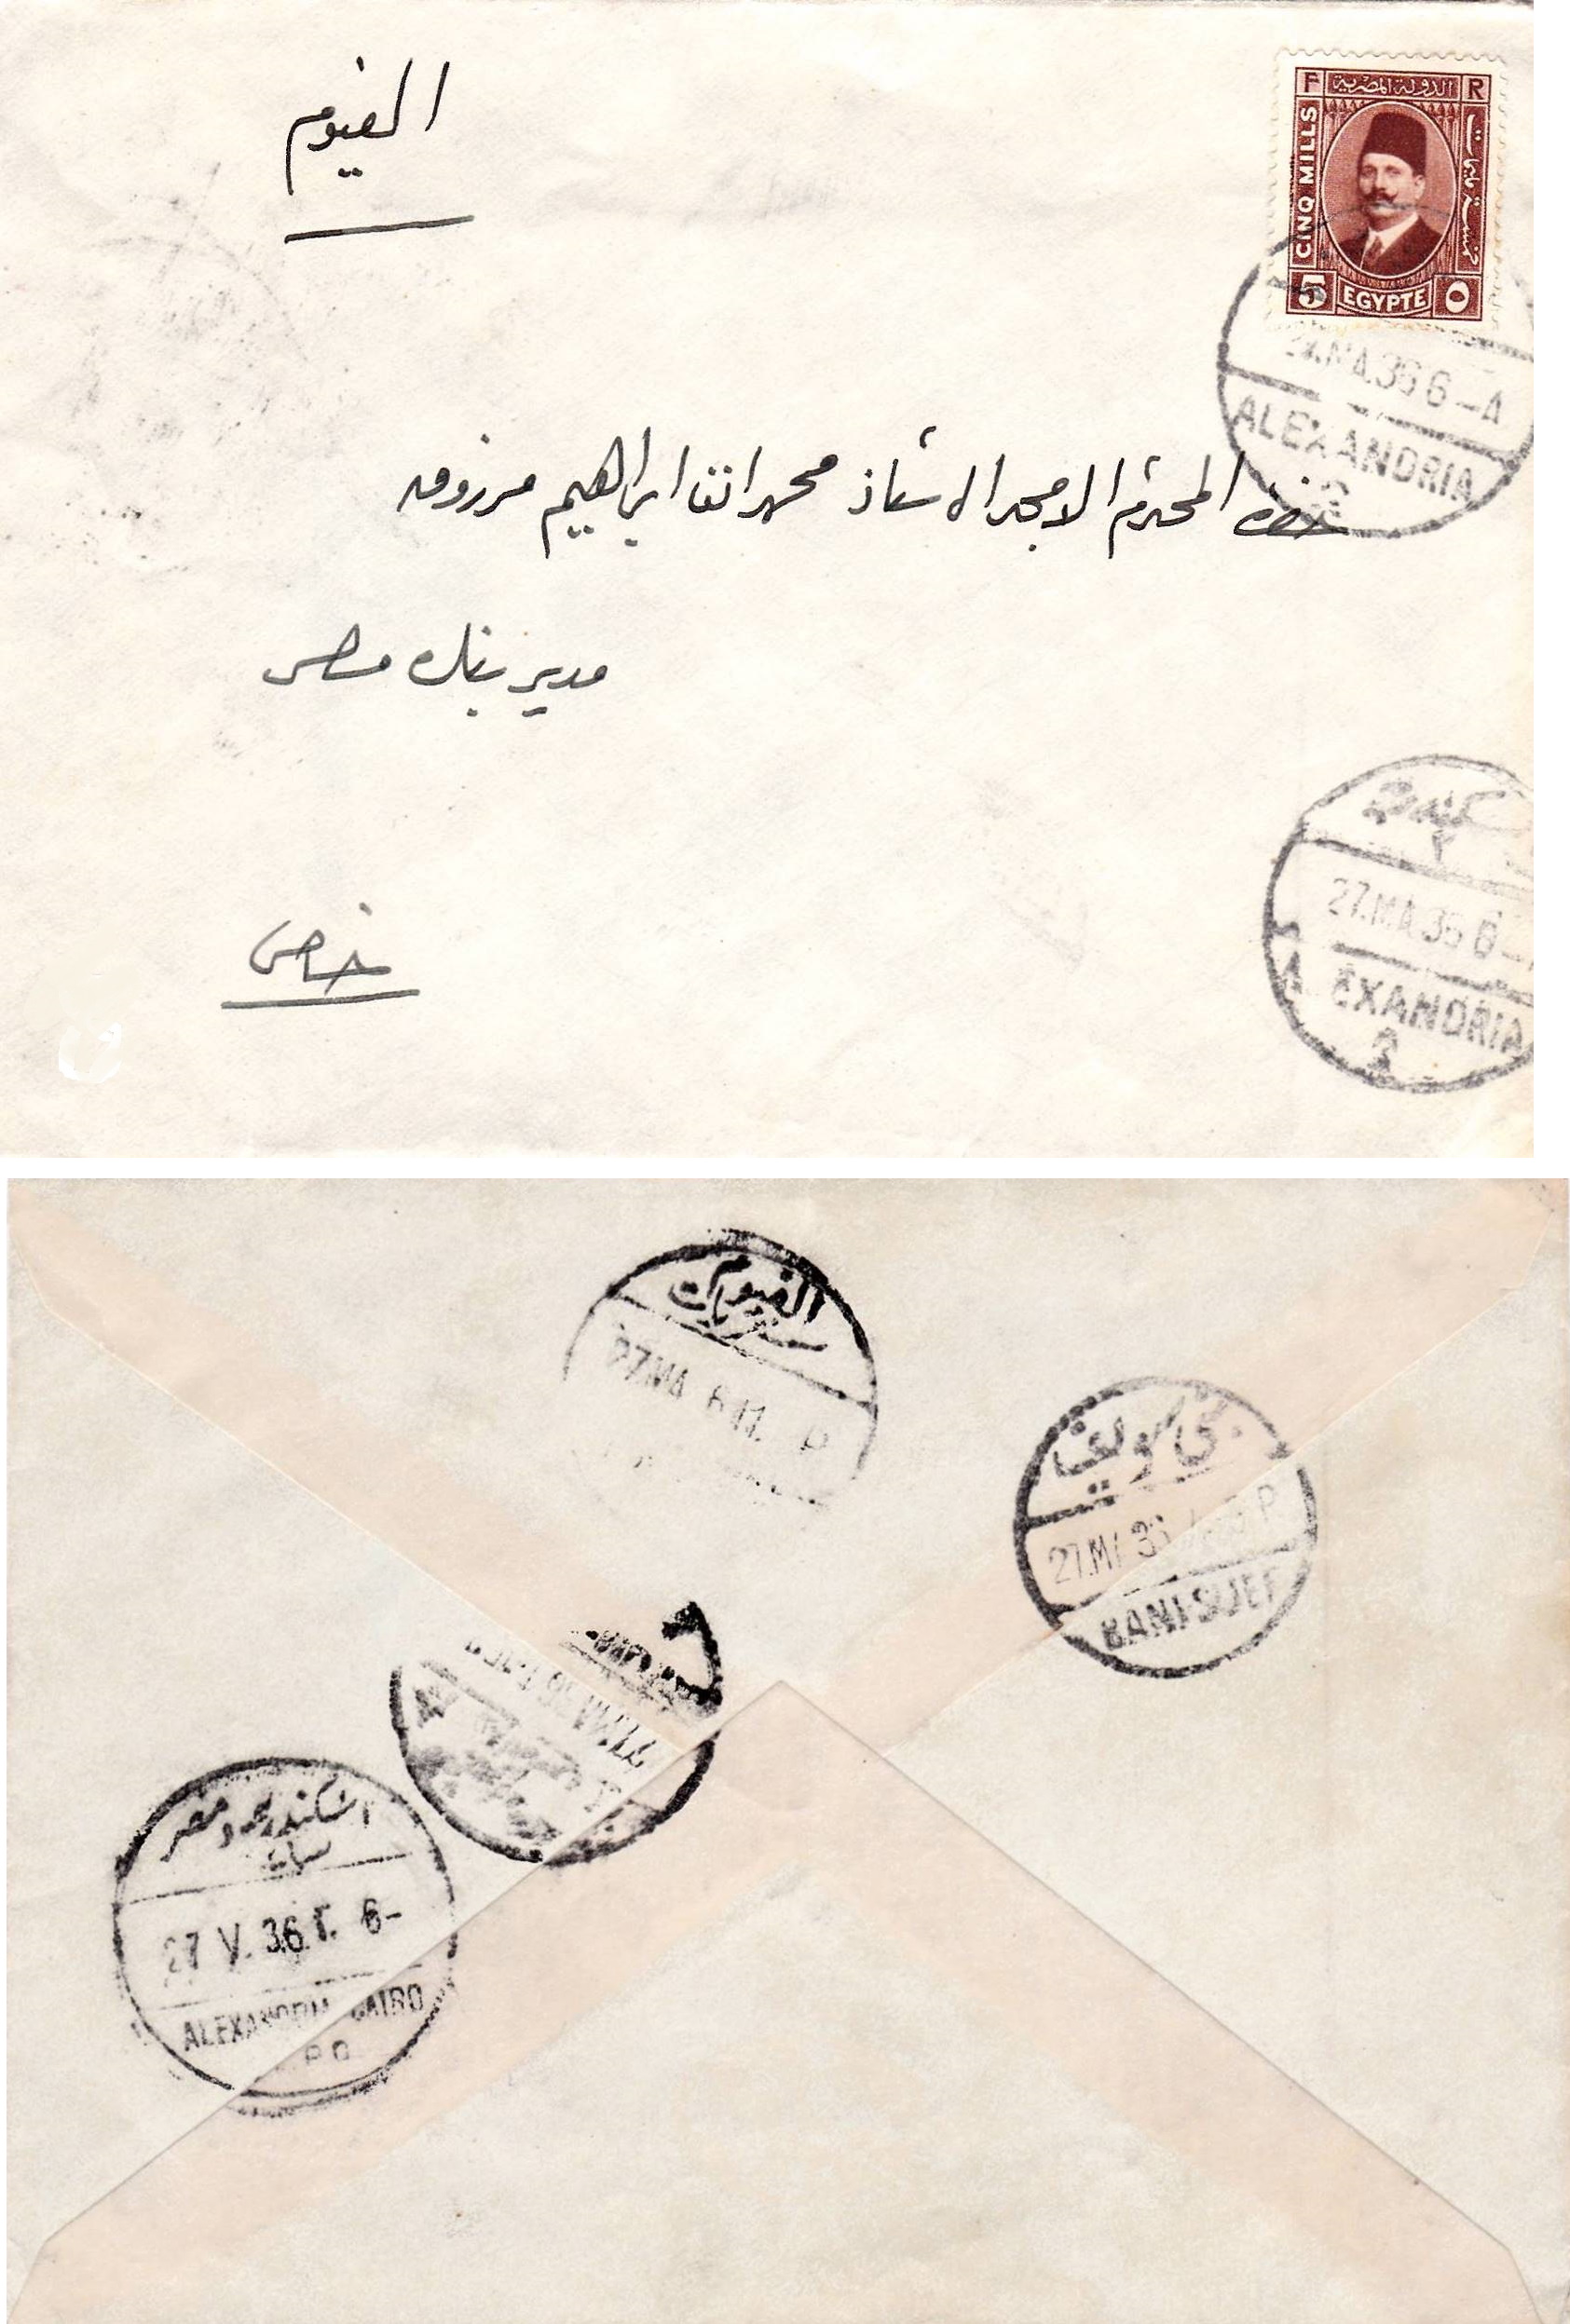 الفيوم
F الدولة المصرية R
CINQ MILLS
خمسة مليمات
5 EGYPTE ٥
MA.36 6-A
ALEXANDRIA
2
حضرة المحترم الامجد الاستاذ محمد افندى ابراهيم مرزوق
مدير بنك مصر
خاص
٢
27.MA.36 6-
ALEXANDRIA
2
الفيوم
سريات
27.MA 6 11. P
بنى سويف
27.MA 36 P
BANI-SUEF
27.MA 36
اسكندرية ومصر
27 V. 36.T. 6-
ALEXANDRIA CAIRO
P.O.